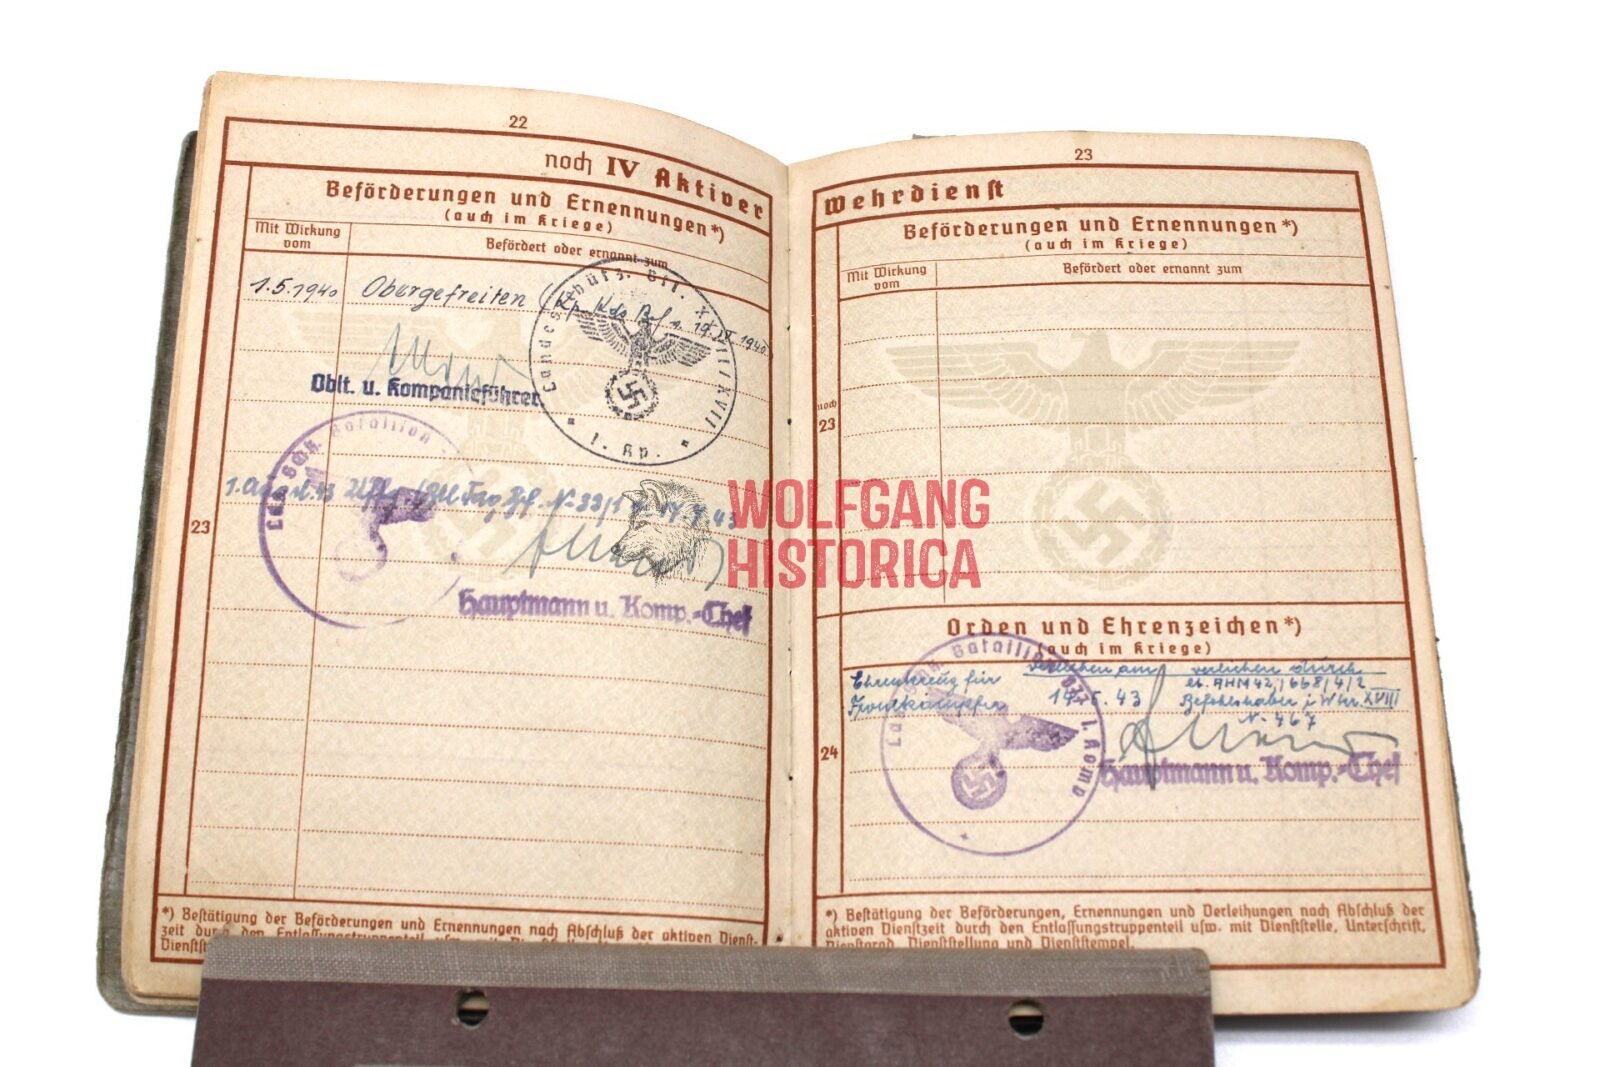 22
noch IV Aktiver
Beförderungen und Ernennungen*)
(auch im Kriege)
Mit Wirkung
vom
Befördert oder ernannt zum
1.5.1940 Obergefreiten
19.IX.1940.
Oblt. u. Kompanieführer
1. Kp.
Bataillon
23
43
Hauptmann u. Komp.-Chef
*) Bestätigung der Beförderungen und Ernennungen nach Abschluß der aktiven Dienst-
zeit durch den Entlassungstruppenteil usw. mit
WOLFGANG
HISTORICA
23
Wehrdienst
Beförderungen und Ernennungen*)
(auch im Kriege)
Mit Wirkung
vom
Befördert oder ernannt zum
noch
23
Orden und Ehrenzeichen*)
(auch im Kriege)
verliehen am verliehen durch
Ehrenkreuz für
Frontkämpfer
Befehlshaber i. Wkr. XVIII
N. 467
24
Bataillon
1. Komp
Hauptmann u. Komp.-Chef
*) Bestätigung der Beförderungen, Ernennungen und Verleihungen nach Abschluß der
aktiven Dienstzeit durch den Entlassungstruppenteil usw. mit Dienststelle, Unterschrift,
Dienstgrad, Dienststellung und Dienststempel.